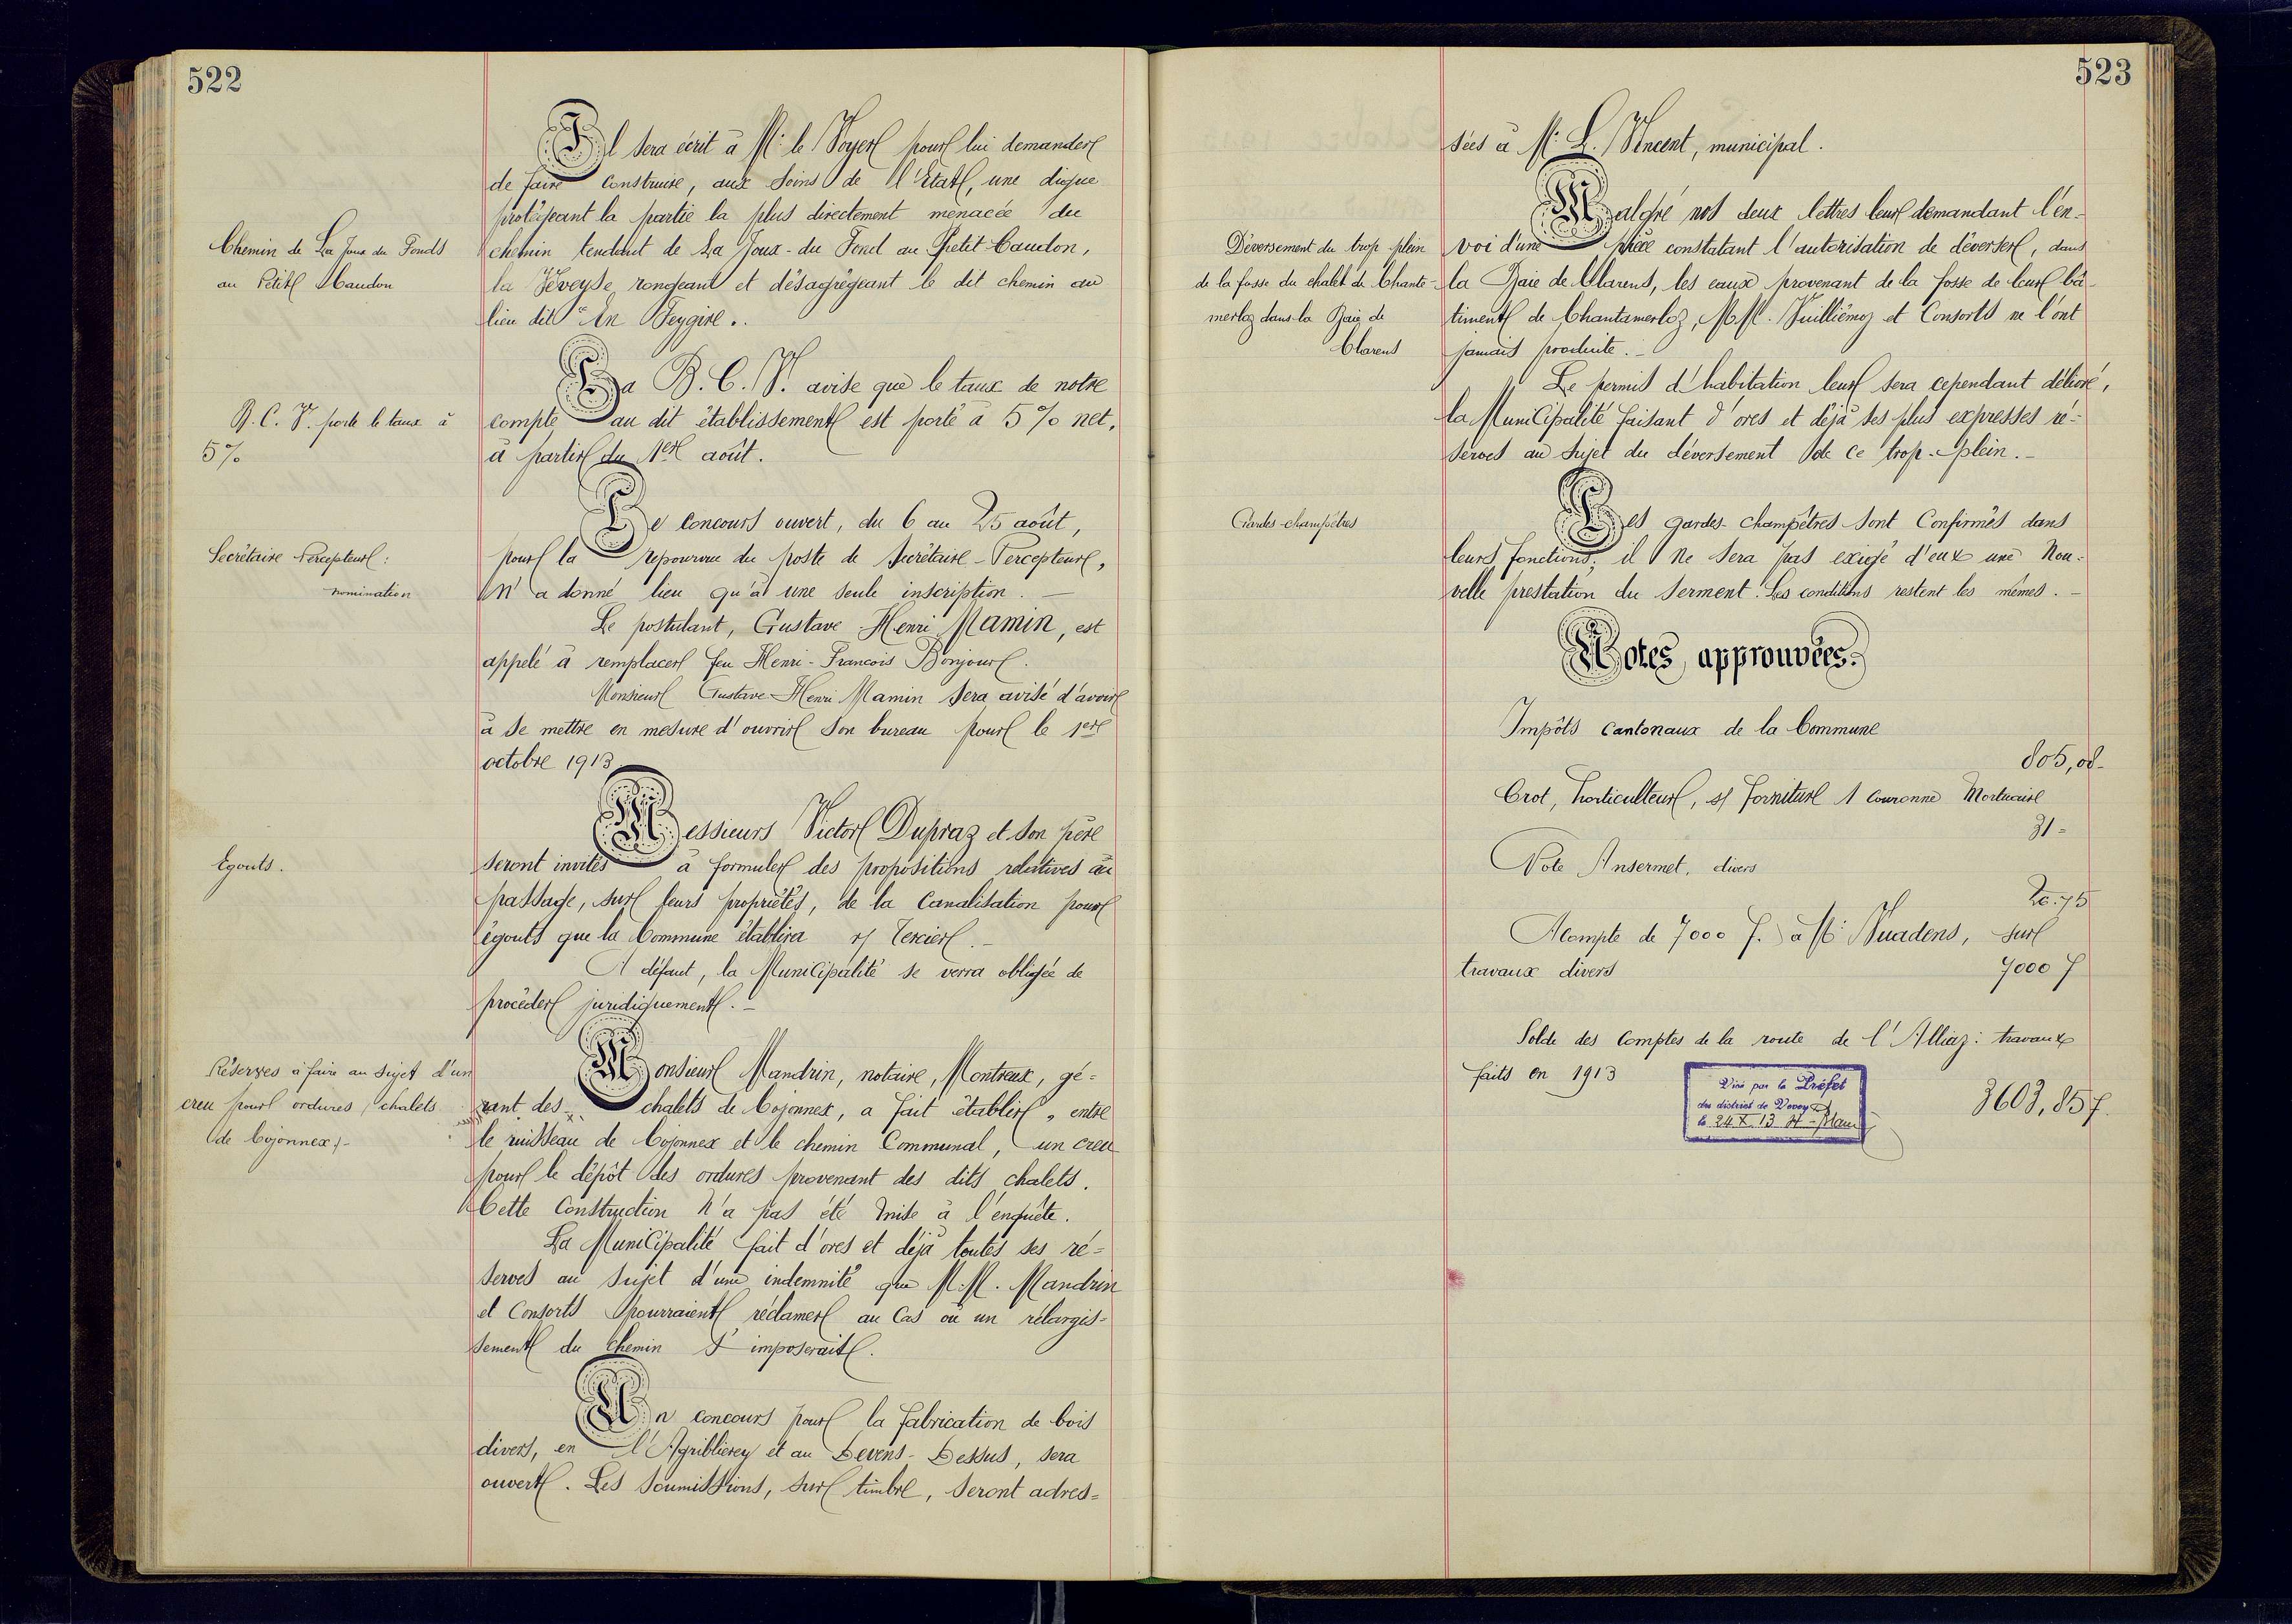 522
Il sera écrit à M: le Voyer pour lui demander
de faire construire, aux soins de l'Etat, une digue
protégeant la partie la plus directement menacée du
Chemin de La Joux du Fonds
au Petit Caudon
chemin tendant de La Joux-du Fond au Petit Caudon,
la Veveyse rongeant et désagrégeant le dit chemin au
lieu dit "En Feygire".
La B. C. V. avise que le taux de notre
B. C. V. porte le taux à
5%
compte au dit établissement est porté à 5% net,
à partir du 1er août.
Le concours ouvert, du 6 au 25 août,
Secrétaire Percepteur:
nomination
pour la repourvue du poste de Secrétaire-Percepteur,
n'a donné lieu qu'à une seule inscription. —
Le postulant, Gustave Henri Mamin, est
appelé à remplacer feu Henri-Francois Bonjour.
Monsieur Gustave-Henri Mamin sera avisé d'avoir
à se mettre en mesure d'ouvrir son bureau pour le 1er
octobre 1913.
Messieurs Victor Dupraz et son père
Egouts.
seront invités à formuler des propositions relatives au
passage, sur leurs propriétés, de la canalisation pour
égouts que la Commune établira s/ Tercier. —
A défaut, la Municipalité se verra obligée de
procéder juridiquement. —
Monsieur Mandrin, notaire, Montreux, gé=
Réserves à faire au sujet d'un
creu pour ordures, chalets
de Cojonnex. -
rant des chalets de Cojonnex, a fait établir, entre
le ruisseau de Cojonnex et le chemin Communal, un creu
pour le dépôt des ordures provenant des dits chalets.
Cette Construction n'a pas été mise à l'enquête.
La Municipalité fait d'ores et déjà toutes ses ré=
serves au sujet d'une indemnité que M.M. Mandrin
et Consorts pourraient réclamer au cas où un rélargis=
sement du Chemin s'imposerait.
Un concours pour la fabrication de bois
divers, en l'Agriblierey et au Devens-Dessus, sera
ouvert. Les soumissions, sur timbre, seront adres=
523
sées à M: L. Vincent, municipal.
Malgré nos deux lettres leur demandant l'en=
Déversement du trop plein
de la fosse du chalet de Chante-
merloz dans la Baie de
Clarens
voi d'une pièce constatant l'autorisation de déverser, dans
la Baie de Clarens, les eaux provenant de la fosse de leur bâ-
timent de Chantamerloz, M.M. Vuilliémoz et Consorts ne l'ont
jamais produite. —
Le permis d'habitation leur sera cependant délivré,
la Municipalité faisant d'ores et déjà ses plus expresses ré=
serves au sujet du déversement de ce trop-plein. —
Les gardes-champêtres sont confirmés dans
Gardes-champêtres
leurs fonctions; il ne sera pas exigé d'eux une nou=
velle prestation du serment. Les conditions restent les mêmes. —
Notes approuvées.
Impôts cantonaux de la Commune
805,08-
Crot, horticulteur, s/ forniture 1 couronne Mortuaire
31=
Note Ansermet, divers
26.75
Acompte de 7000 f. à M: Vuadens, sur
travaux divers 7000 f
Solde des Comptes de la route de l'Alliaz: travaux
faits en 1913
3603,85 f.
Visé par le Préfet
du district de Vevey
le 24 X 13